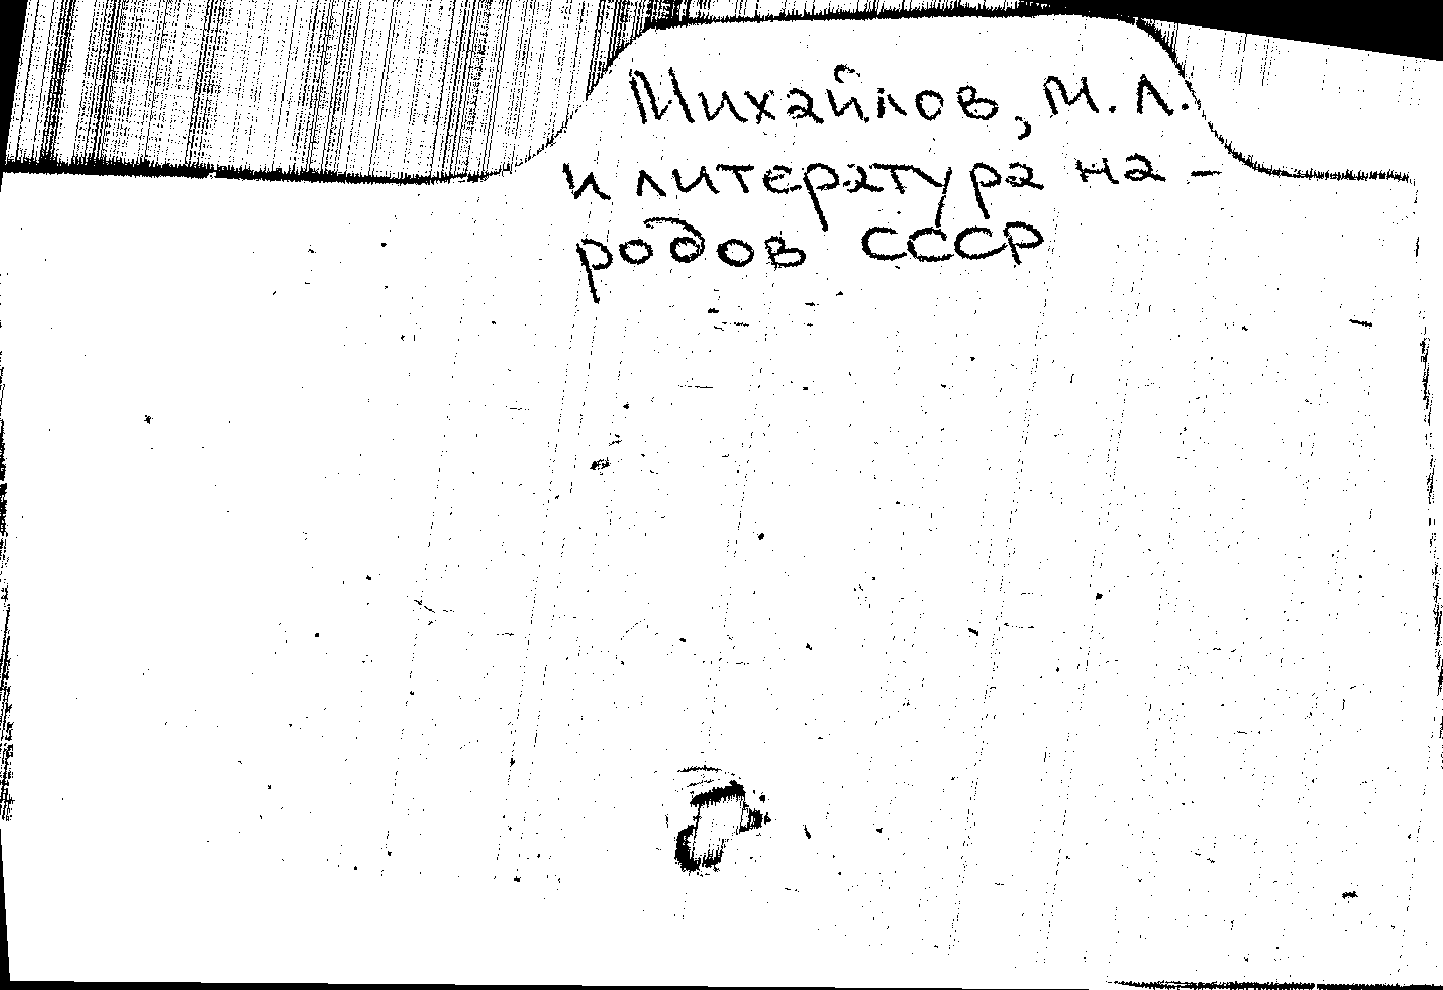 Михайлов, М. Л.
и литература на-
родов СССР